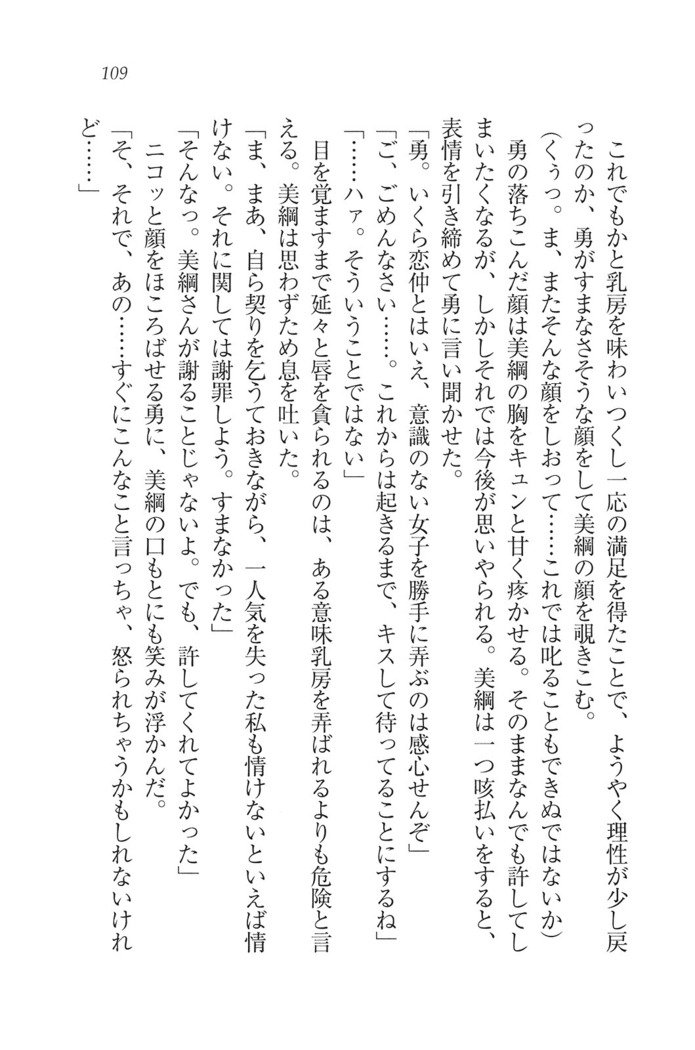 109
これでもかと乳房を味わいつくし一応の満足を得たことで、ようやく理性が少し戻
ったのか、勇がすまなさそうな顔をして美綱の顔を覗きこむ。
（くぅっ。ま、またそんな顔をしおって……これでは叱ることもできぬではないか）
勇の落ちこんだ顔は美綱の胸をキュンと甘く疼かせる。そのままなんでも許してし
まいたくなるが、しかしそれでは今後が思いやられる。美綱は一つ咳払いをすると、
表情を引き締めて勇に言い聞かせた。
「勇。いくら恋仲とはいえ、意識のない女子を勝手に弄ぶのは感心せんぞ」
「ご、ごめんなさい……。これからは起きるまで、キスして待ってることにするね」
「……ハァ。そういうことではない」
目を覚ますまで延々と唇を貪られるのは、ある意味乳房を弄ばれるよりも危険と言
える。美綱は思わずため息を吐いた。
「ま、まあ、自ら契りを乞うておきながら、一人気を失った私も情けないといえば情
けない。それに関しては謝罪しよう。すまなかった」
「そんなっ。美綱さんが謝ることじゃないよ。でも、許してくれてよかった」
ニコッと顔をほころばせる勇に、美綱の口もとにも笑みが浮かんだ。
「そ、それで、あの……すぐにこんなこと言っちゃ、怒られちゃうかもしれないけれ
ど……」